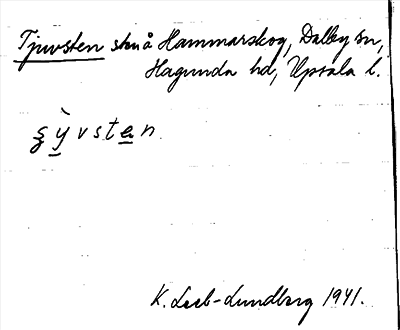 Tjuvsten stnå Hammarskog, Dalby sn,
Hagunda hd, Upsala l.
ʒỳ̠vste̠n
K. Leeb-Lundberg 1941.